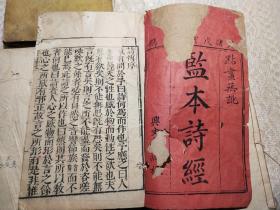 點畫無訛
監本詩經
興文
詩經序
或有問於予曰詩何爲而作也予應之曰人
生而靜天之性也感於物而動性之欲也夫
既有欲矣則不能無思既有思矣則不能無
言既有言矣則言之所不能盡而發於咨嗟
咏歎之餘者必有自然之音響節族而不能
已焉此詩之所以作也曰然則其所以教者
何也曰詩者人心之感物而形於言之餘也
心之所感有邪正故言之所形有是非惟